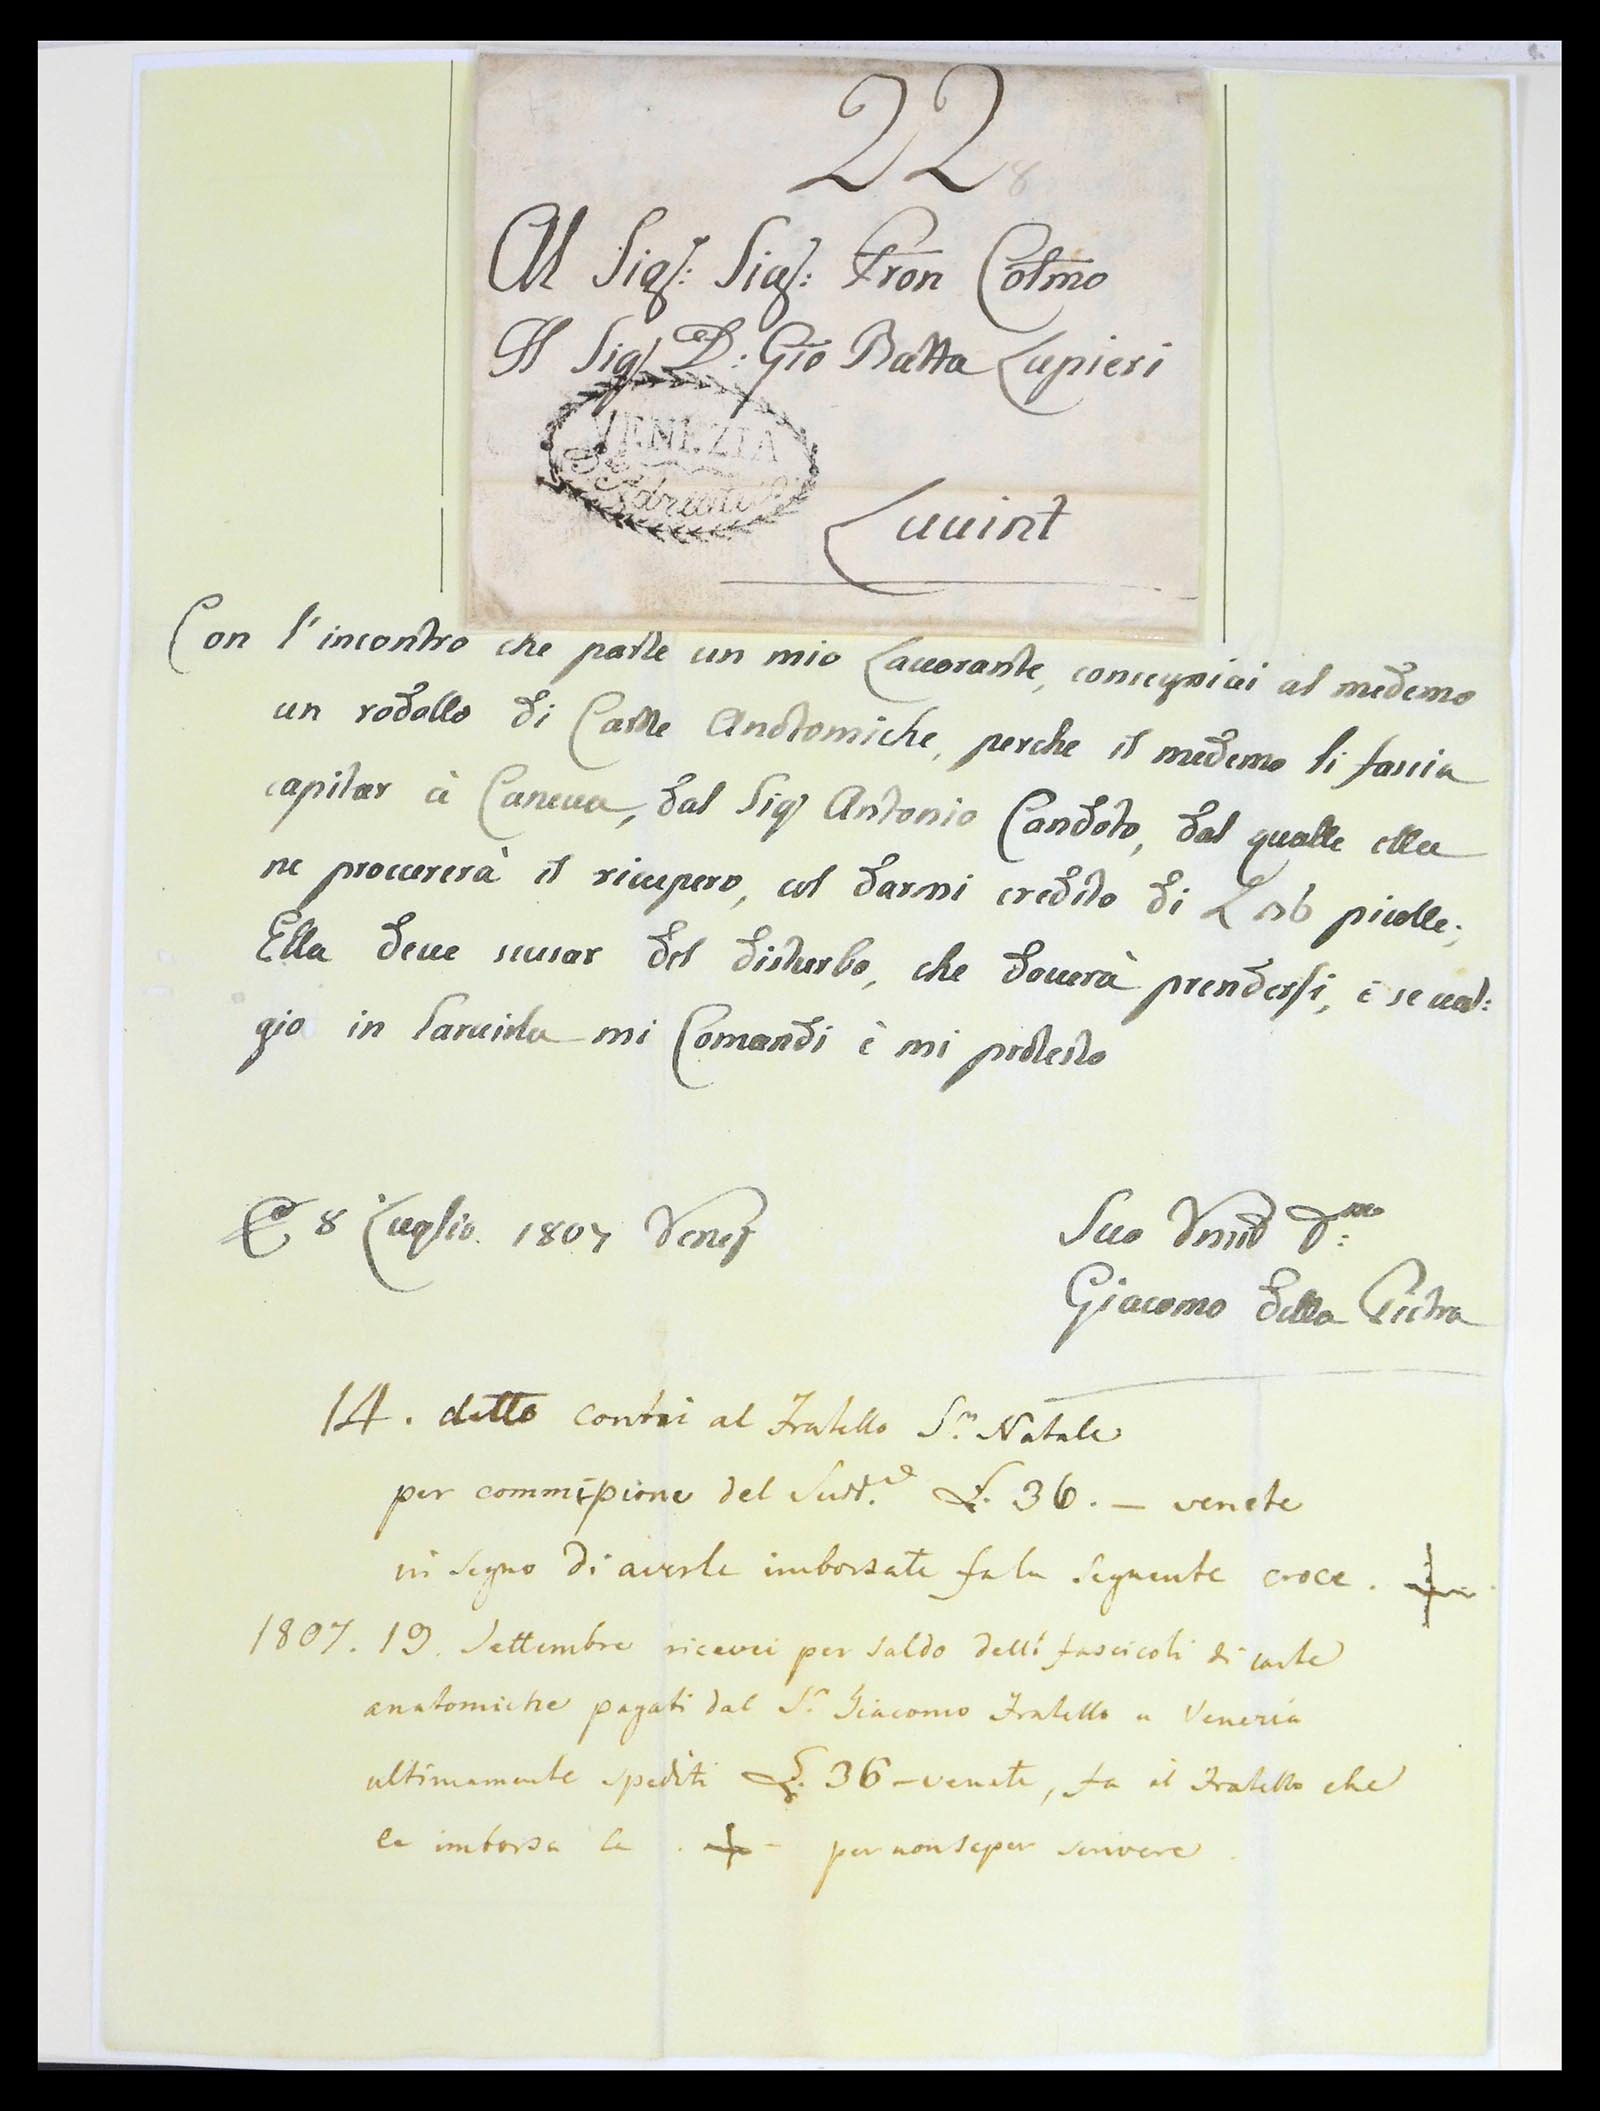 22
8
Al Sigr: Sigr: Pron Colmo
Il Sigr D: Gio Batta Lupieri
VENEZIA
Luuint
Con l'incontro che parte un mio Lauorante, consegniai al medemo
un rodollo di Carte Anotomiche, perche il medemo li faccia
capitar à Caneua, dal Sigr Antonio Candoto, dal qualle ella
ne procurerà il ricupero, col darmi credito di L 36 picolle;
Ella deue scusar del disturbo, che douerà prendersi, è se ual:
gio in Saruirla mi Comandi è mi protesto
8 Luglio. 1807 Veneza
Suo
Giacomo della Pietra
14. detto contai al Fratello Sr. Natale
per commissione del Sudd.o £. 36. — venete
in segno di averle imborsate fa la seguente croce. +
1807. 19. Settembre ricevei per saldo delli fascicoli di carte
anatomiche pagati dal Sr. Giacomo Fratello a Venezia
ultimamente spediti £. 36 — venete, fa il Fratello che
le imborsa la . + - per non saper scrivere.